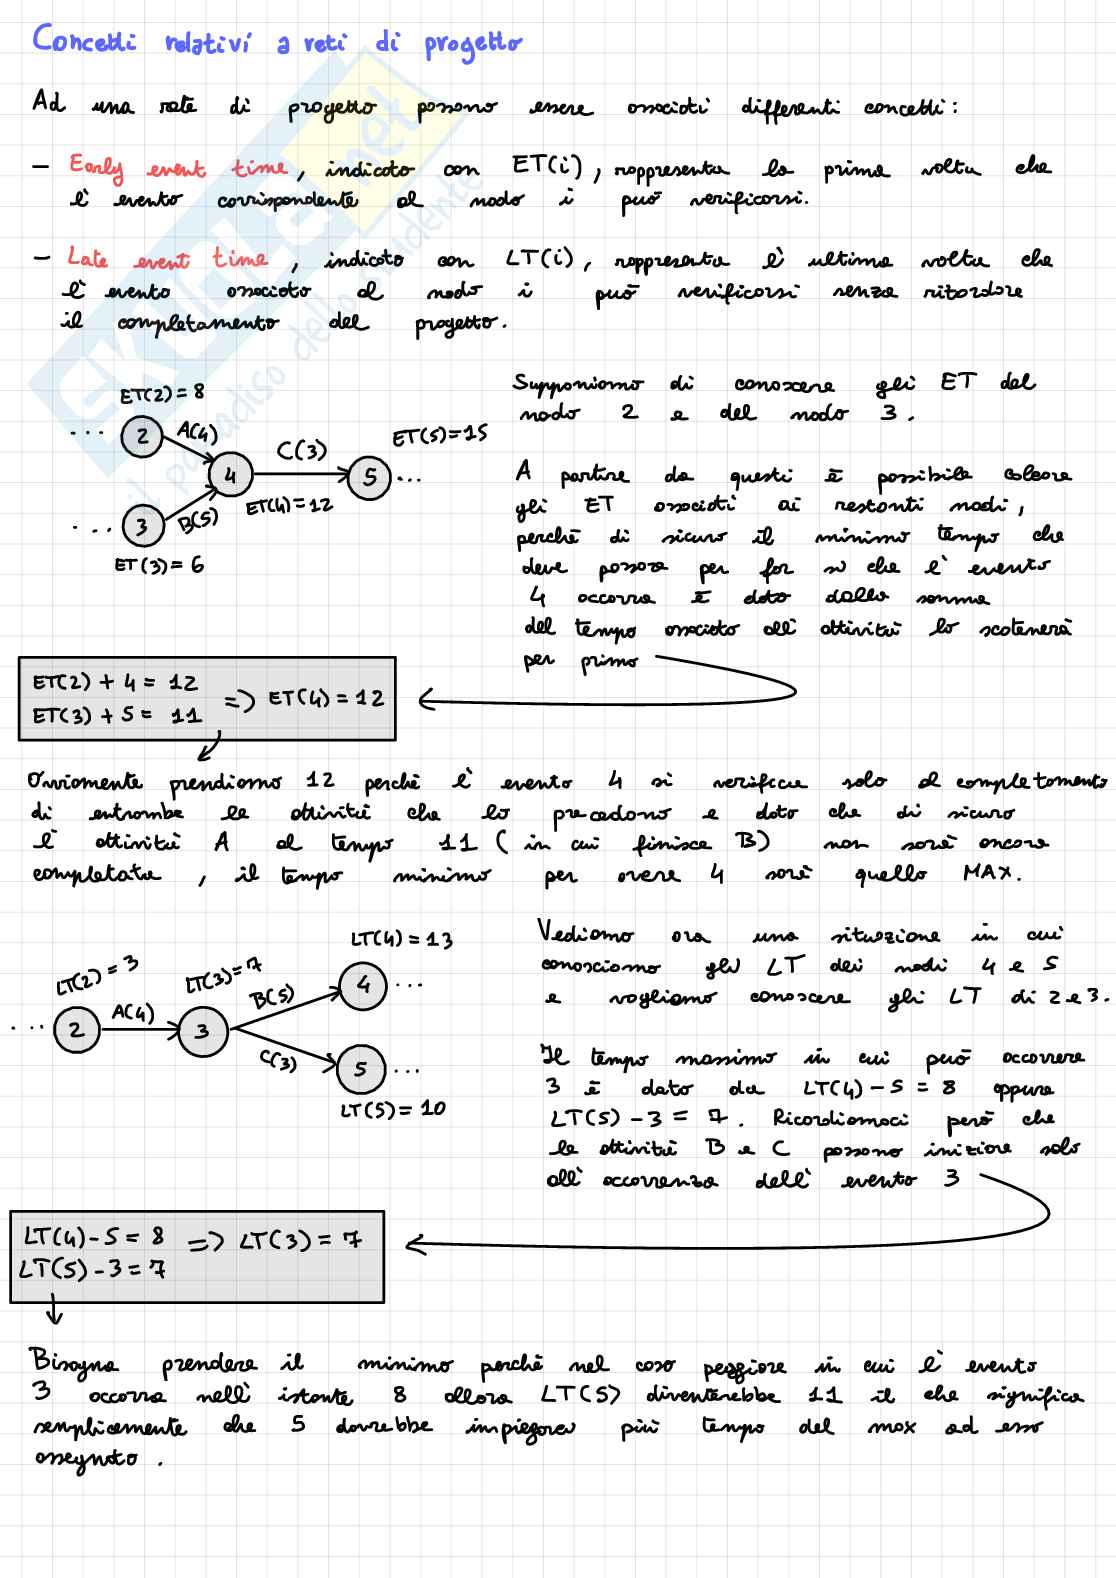 Concetti relativi a reti di progetto
Ad una rete di progetto possono essere associati differenti concetti:
- Early event time, indicato con ET(i), rappresenta la prima volta che
l'evento corrispondente al nodo i può verificarsi.
- Late event time, indicato con LT(i), rappresenta l'ultima volta che
l'evento associato al nodo i può verificarsi senza ritardare
il completamento del progetto.
ET(2) = 8
... 2 A(4)
4 C(3) 5 ...
ET(5)=15
ET(4)=12
... 3 B(5)
ET(3)= 6
Supponiamo di conoscere gli ET del
nodo 2 e del nodo 3.
A partire da questi è possibile calcolare
gli ET associati ai restanti nodi,
perchè di sicuro il minimo tempo che
deve passare per far sì che l'evento
4 occorra è dato dalla somma
del tempo associato all'attività lo scatenerà
per primo
ET(2) + 4 = 12
ET(3) + 5 = 11
=> ET(4) = 12
Ovviamente prendiamo 12 perchè l'evento 4 si verifica solo al completamento
di entrambe le attività che lo precedono e dato che di sicuro
l'attività A al tempo 11 (in cui finisce B) non sarà ancora
completata, il tempo minimo per avere 4 sarà quello MAX.
LT(4) = 13
LT(2) = 3
LT(3)=7
... 2 A(4) 3 B(5) 4 ...
C(3) 5 ...
LT(5) = 10
Vediamo ora una situazione in cui
conosciamo gli LT dei nodi 4 e 5
e vogliamo conoscere gli LT di 2 e 3.
Il tempo massimo in cui può occorrere
3 è dato da LT(4) - 5 = 8 oppure
LT(5) - 3 = 7. Ricordiamoci però che
le attività B e C possono iniziare solo
all'occorrenza dell'evento 3
LT(4) - 5 = 8
LT(5) - 3 = 7
=> LT(3) = 7
Bisogna prendere il minimo perchè nel caso peggiore in cui l'evento
3 occorra nell'istante 8 allora LT(5) diventerebbe 11 il che significa
semplicemente che 5 dovrebbe impiegare più tempo del max ad esso
assegnato.
SKUOLA.net
il paradiso dello studente